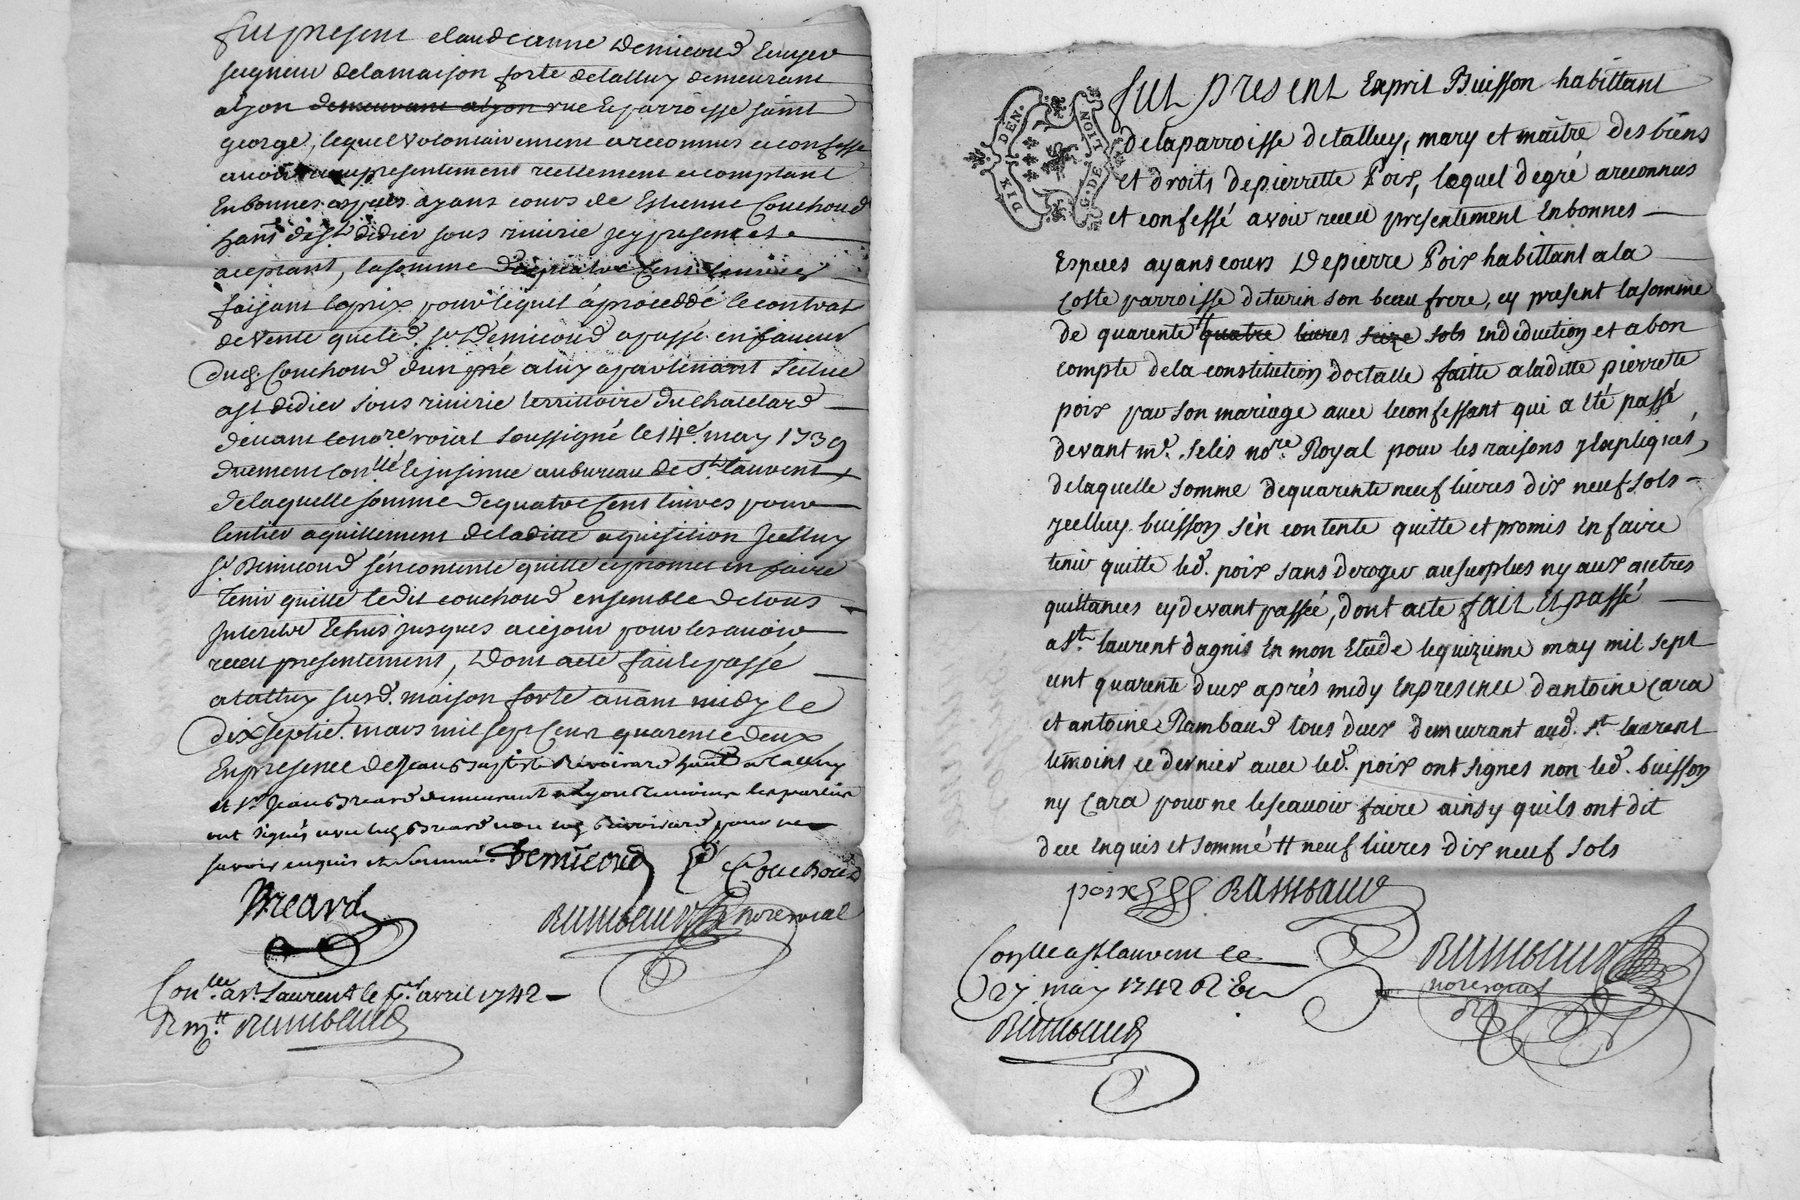 fut present claude anne Demicoud Ecuyer
seigneur delamaison forte detalluy demeurant
alyon demeurant alyon rue Et parroisse saint
george, lequel volontairement areconnus et confesse
avoir receu presentement reellement et comptant
En bonnes especes ayans cours de Estienne Couchoud
hant. de st. didier sous riuirie jcy present et
aceptant, la somme de quatre cens liures
faisant le prix pour lequel a procedde le contrat
de vente que led. sr. Demicoud a passé en faueur
dud. Couchoud d'un pré a luy apartenant scitue
a st didier sous riuirie territoire du chatelard
deuant le nore. roial soussigné le 14e. may 1739
duement conllé Et jnsinue au bureau de st. laurent
de laquelle somme de quatre cens liures pour
lentier aquittement de laditte aquisition Jcelluy
sr. Demicoud s'en contente quitte et promet en faire
tenir quitte ledit couchoud ensemble de tous
Jnterets Echus jusques a ce jour pour les auoir
receu presentement, Dont acte fait et passé
a talluy sud. maison forte auant midy le
dix septie. mars mil sept cent quarente deux
En presence de Jean baptiste Riuoirard hant. a talluy
et sr. Jean Breard demeurant a Lyon temoins les parties
ont signés avec led. Breard non led. Riuoirard pour ne
savoir enquis et sommé. Demicoud Couchoud
Breard
Rambaud nore roial
Conllee. a st. Laurent le 1er. avril 1742
R Rambaud
DEN. LION G. DE
fut present Esprit Buisson habittant
de la parroisse de talluy, mary et maitre des biens
et droits de pierrette Poix, lequel de gré a reconnus
et confessé avoir receu presentement En bonnes
Especes ayans cours De pierre Poix habittant a la
Coste parroisse de turin son beau frere, cy present la somme
de quarente # quatre livres seize sols En deduction et a bon
compte de la constitution doctalle faitte a laditte pierrette
poix par son mariage avec le confessant qui a été passé
devant me. Selis nore. Royal pour les raisons y Expliquées,
de laquelle somme de quarente neuf livres dix neuf sols
ycelluy buisson s'en contente quitte et promis En faire
tenir quitte led. poix sans deroger au surplus ny aux autres
quittances cy devant passée, dont acte fait Et passé
a st. laurent dagnis En mon Etude le quizieme may mil sept
cent quarente deux aprés midy En presence d'antoine Cara
et antoine Rambaud tous deux demeurant aud. st. laurent
témoins ce dernier avec led. poix ont signés non led. buisson
ny Cara pour ne le scavoir faire ainsy quils ont dit
de ce Enquis et sommé # neuf livres dix neuf sols
poix Rambaud
Conlle a st laurent le
27 may 1742 R
Rambaud
Rambaud
nore roial